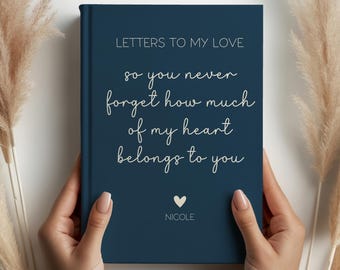 LETTERS TO MY LOVE
so you never
forget how much
of my heart
belongs to you
NICOLE